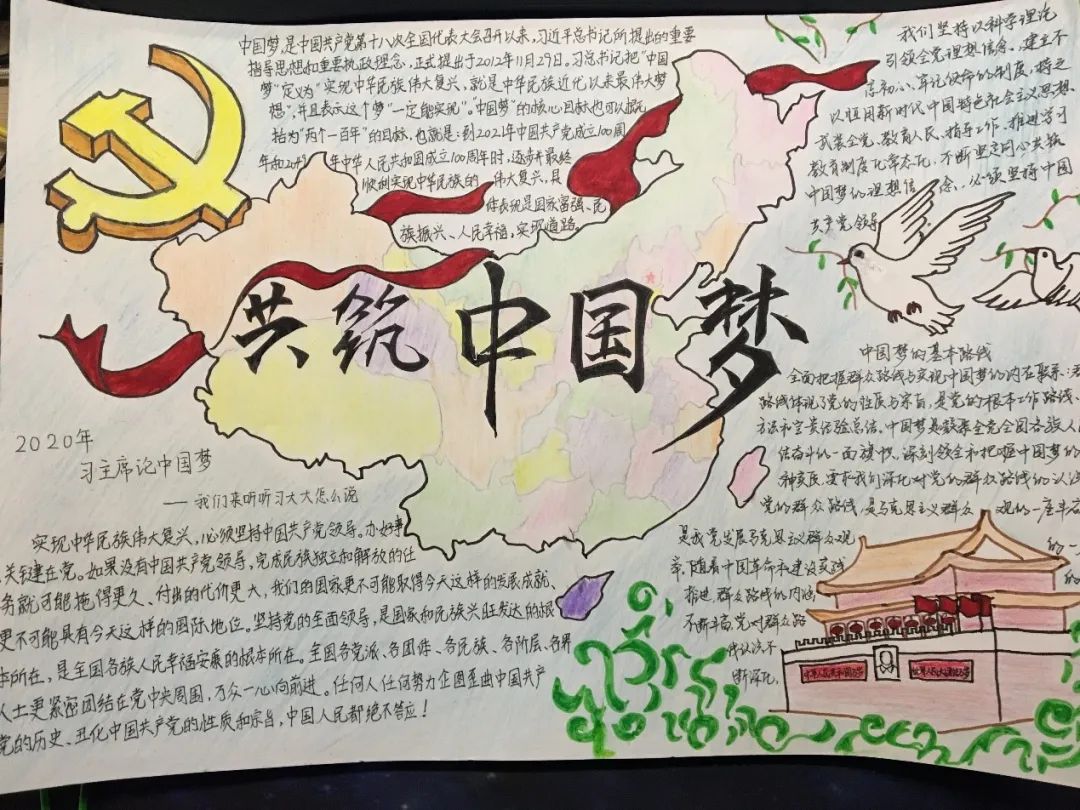 中国梦,是中国共产党第十八次全国代表大会召开以来,习近平总书记所提出的重要
指导思想和重要执政理念,正式提出于2012年11月29日。习总书记把"中国
梦"定义为"实现中华民族伟大复兴,就是中华民族近代以来最伟大梦
想",并且表示这个梦"一定能实现"。"中国梦"的核心目标也可以概
括为"两个一百年"的目标,也就是:到2021年中国共产党成立100周
年和20 年中华人民共和国成立100周年时,逐步并最终
顺利实现中华民族的 伟大复兴,具
体表现是国家富强、民
族振兴、人民幸福,实现道路
我们坚持以科学理论
引领全党理想信念,建立不
忘初心、牢记使命的制度,持之
以恒用新时代中国特色社会主义思想,
武装全党、教育人民、指导工作、推进学习
教育制度化常态化,不断坚定同心共筑
中国梦的理想信念,必须坚持中国
共产党领导
共筑中国梦
中国梦的基本路线
全面把握群众路线与实现中国梦的内在联系:
路线体现了党的性质与宗旨,是党的根本工作路线、
方法和宝贵经验总结。中国梦是凝聚全党全国各族人
信奋斗的一面旗帜。深刻领会和把握中国梦的
种实质,要求我们深化对党的群众路线的认识
党的群众路线,是马克思主义群众 观的一座丰
是我党发展马克思主义群众观 的一
章,随着中国革命和建设实践 的
推进,群众路线的内涵
不断丰富,党对群众路
线认识不
断深化,
2020年
习主席论中国梦
——我们来听听习大大怎么说
实现中华民族伟大复兴,必须坚持中国共产党领导。办好事
关键在党。如果没有中国共产党领导,完成民族独立和解放的任
务就可能拖得更久、付出的代价更大,我们的国家更不可能取得今天这样的发展成就、
更不可能具有今天这样的国际地位。坚持党的全面领导,是国家和民族兴旺发达的根
本所在,是全国各族人民幸福安康的根本所在。全国各党派、各团体、各民族、各阶层、各界
人士更紧密团结在党中央周围,万众一心向前进。任何人任何势力企图歪曲中国共产
党的历史、丑化中国共产党的性质和宗旨,中国人民都绝不答应!